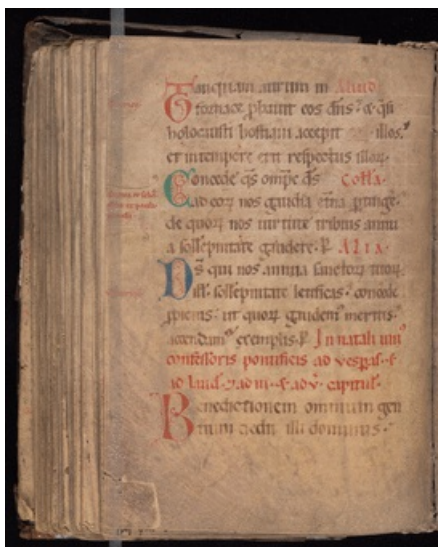 Tanquam aurum in Aliud
fornace ꝓbauit eos dn̄s· ⁊ q̄si
holocausti hostiam accepit illos·
et in tempore erit respectus illoꝝ·
Concede q̄s omp̄s d̄s Coll̄a·
ad eoꝝ nos gaudia et̄na ꝑtinge
de quoꝝ nos uirtute tribuis annu
a sollēpnitate gaudere· ꝑ ALIA·
Ds̄ qui nos annua sanctoꝝ tuoꝝ
sollēpnitate letificas· concede
ꝓpicius· ut quoꝝ gaudem᷒ meritis·
accendam᷒ exemplis· ꝑ In natali uni᷒
confessoris pontificis ad uesꝑas· ⁊
ad laud· ⁊ ad iii· ⁊ ad v̄· capitul̄·
Benedictionem omnium gen
tium dedit illi dominus·